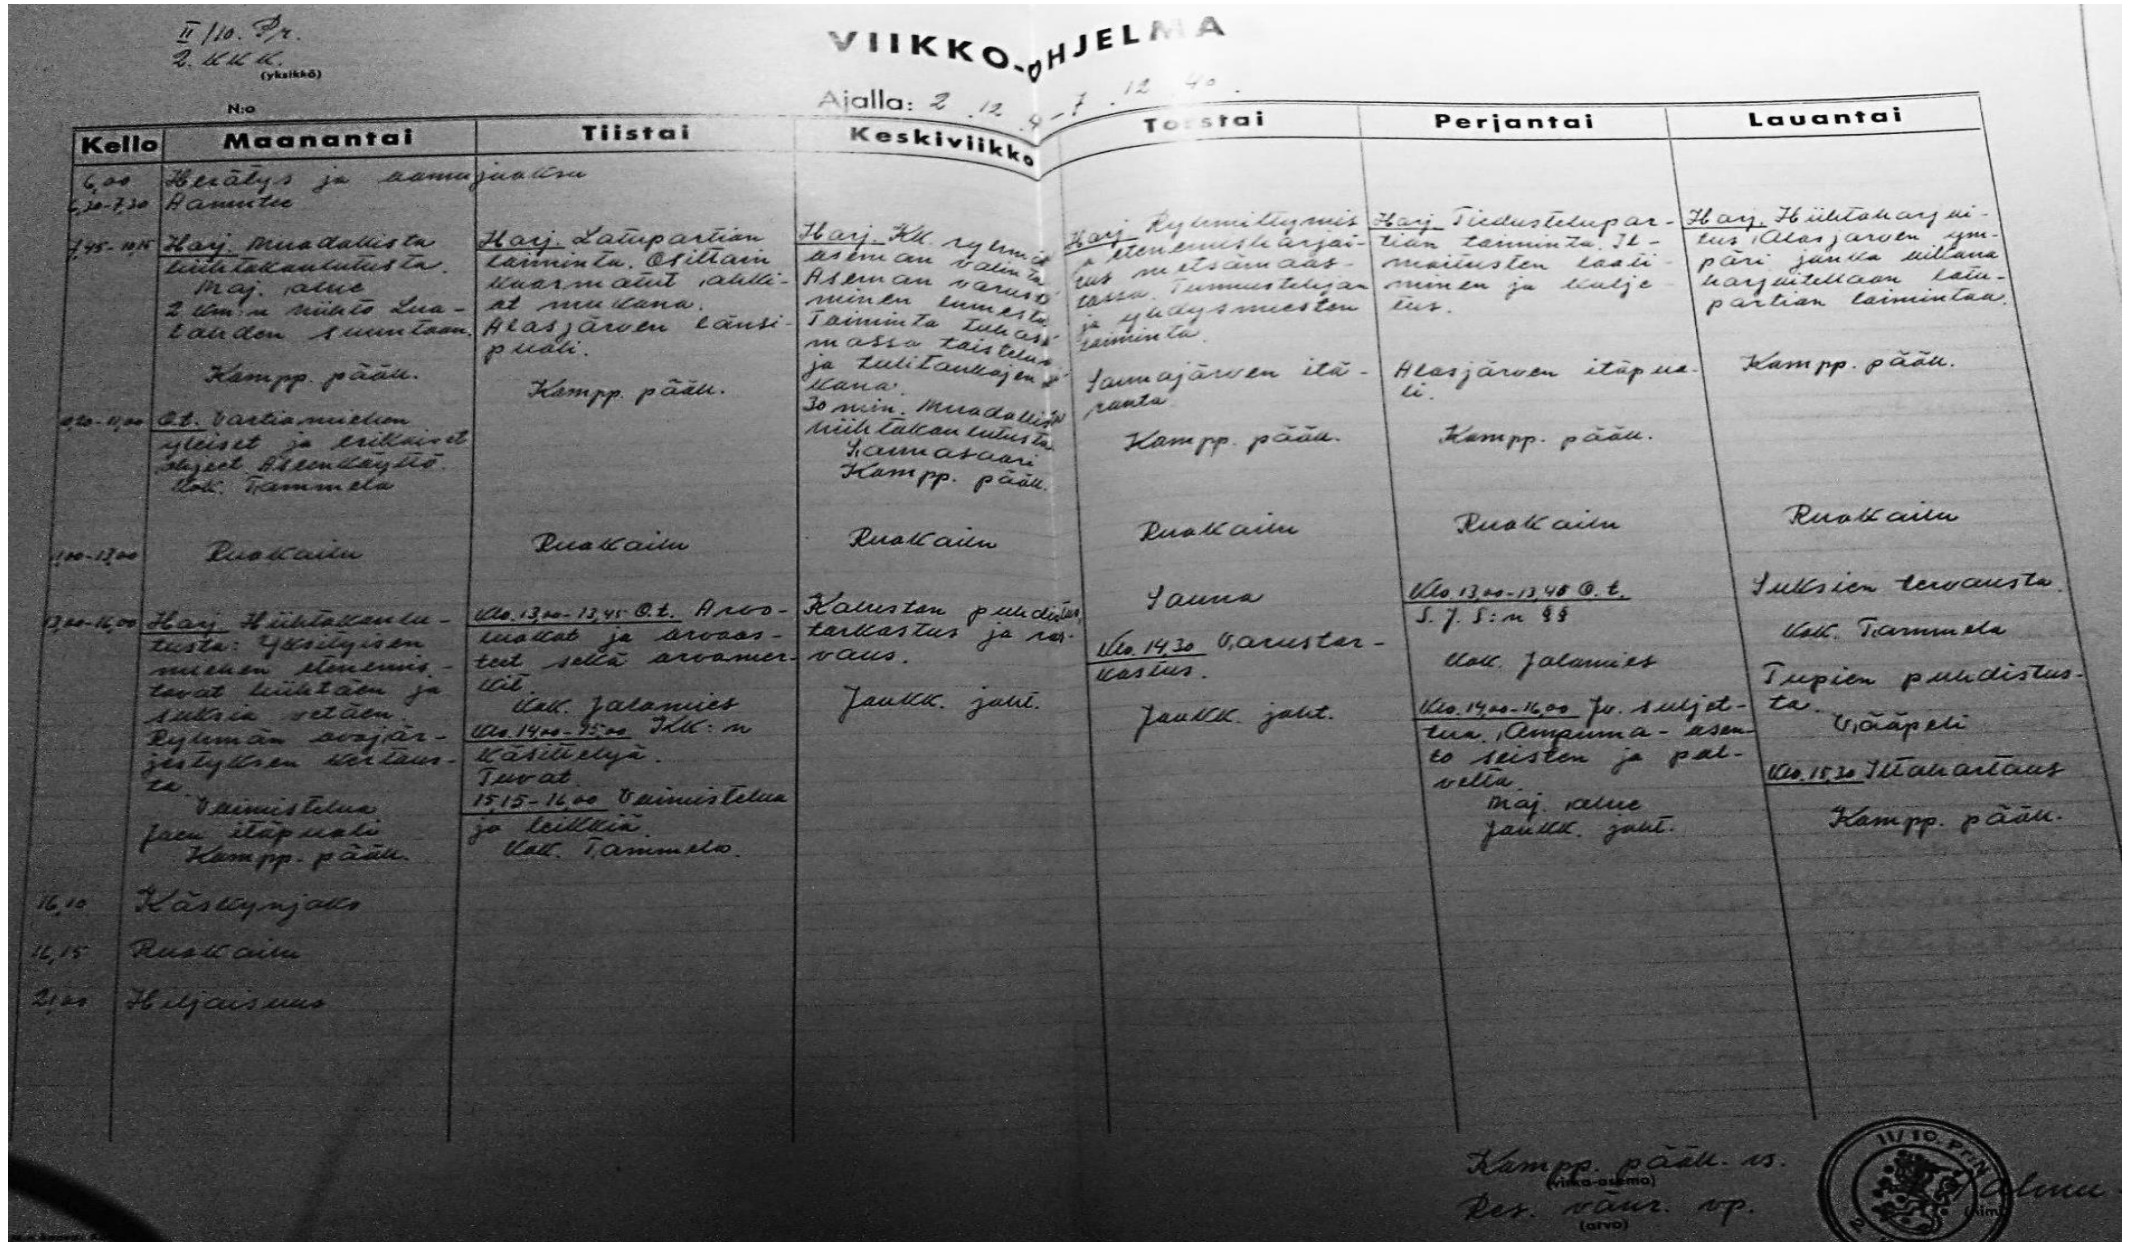 II/10. Pr.
2. KKK.
(yksikkö)
VIIKKO-OHJELMA
N:o
Ajalla: 2.12.4 - 7.12.40.
Kello
Maanantai
Tiistai
Keskiviikko
Torstai
Perjantai
Lauantai
6,00 Herätys ja aamujuoksu
6,30-7,30 Aamutee
7,45-10,15
Harj. Muodollista
hiihtokoulutusta.
Maj. alue
2 km:n hiihto Lua-
lahden suuntaan.
Kompp. pääll.
10,20-11,00
O.t. Vartiomiehen
yleiset ja erikoiset
ohjeet. Aseenkäyttö.
Kok. Tammela
Harj. Latupartion
toiminta. Osittain
kuormatut ahki-
ot mukana.
Alasjärven länsi-
puoli.
Kompp. pääll.
Harj. KK. ryhmä
aseman valinta
Aseman varusta
minen lumesta
Toiminta tuliase
massa taistelun
ja tulitaukojen ai
kana.
30 min. Muodollista
hiihtokoulutusta
Saunasaari
Kompp. pääll.
Harj. Ryhmittymis
ja etenemisharjoi-
tus metsämaas-
tossa. Tunnustelijan
ja yhdysmiesten
toiminta.
Saunajärven itä-
ranta
Kompp. pääll.
Harj. Tiedustelupar-
tion toiminta. Il-
moitusten laati-
minen ja kulje-
tus.
Alasjärven itäpuo-
li.
Kompp. pääll.
Harj. Hiihtoharjoi-
tus Alasjärven ym-
päri jonka aikana
harjoitellaan latu-
partion toimintaa.
Kompp. pääll.
11,00-13,00
Ruokailu
Ruokailu
Ruokailu
Ruokailu
Ruokailu
Ruokailu
13,00-16,00
Harj. Hiihtokoulu-
tusta: Yksityisen
miehen etenemis-
tavat hiihtäen ja
suksia vetäen.
Ryhmän avojär-
jestyksen kertaus-
ta.
Voimistelua
Joen itäpuoli
Kompp. pääll.
Klo. 13,00-13,45 O.t. Arvo-
luokat ja arvoas-
teet sekä arvomer-
kit.
Kok. Jalamies
Klo. 14,00-15,00 KK:n
käsittelyä.
Tuvat
15,15-16,00 Voimistelua
ja leikkiä.
Kok. Tammela.
Kaluston puhdistus,
tarkastus ja ras-
vaus.
Joukk. joht.
Sauna
Klo. 14,30 Varustar-
kastus.
Joukk. joht.
Klo. 13,00-13,45 O.t.
S.J.S:n §§
Kok. Jalamies
Klo. 14,00-16,00 Jv. suljet-
tua. Ampuma-asen-
to seisten ja pol-
velta.
Maj. alue
Joukk. joht.
Suksien tervausta.
Kok. Tammela
Tupien puhdistus-
ta.
Vääpeli
Klo. 15,30 Iltahartaus
Kompp. pääll.
16,10 Käskynjako
16,15 Ruokailu
21,00 Hiljaisuus
Kompp. pääll. vs.
(virka-asema)
Res. vänr. vp.
(arvo)
II/10. Pr:N
(nimi)